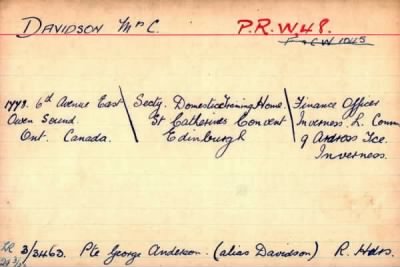 DAVIDSON Mrs C. P.R.W48.
P+CW 1045
1778. 6th Avenue East
Owen Sound.
Ont. Canada.
Secty. Domestic Training Home.
St Catherines Convent
Edinburgh
Finance Officer
Inverness. L. Comm
9 Ardross Tce.
Inverness.
3/3463. Pte George Anderson. (alias Davidson) R. Hdrs.